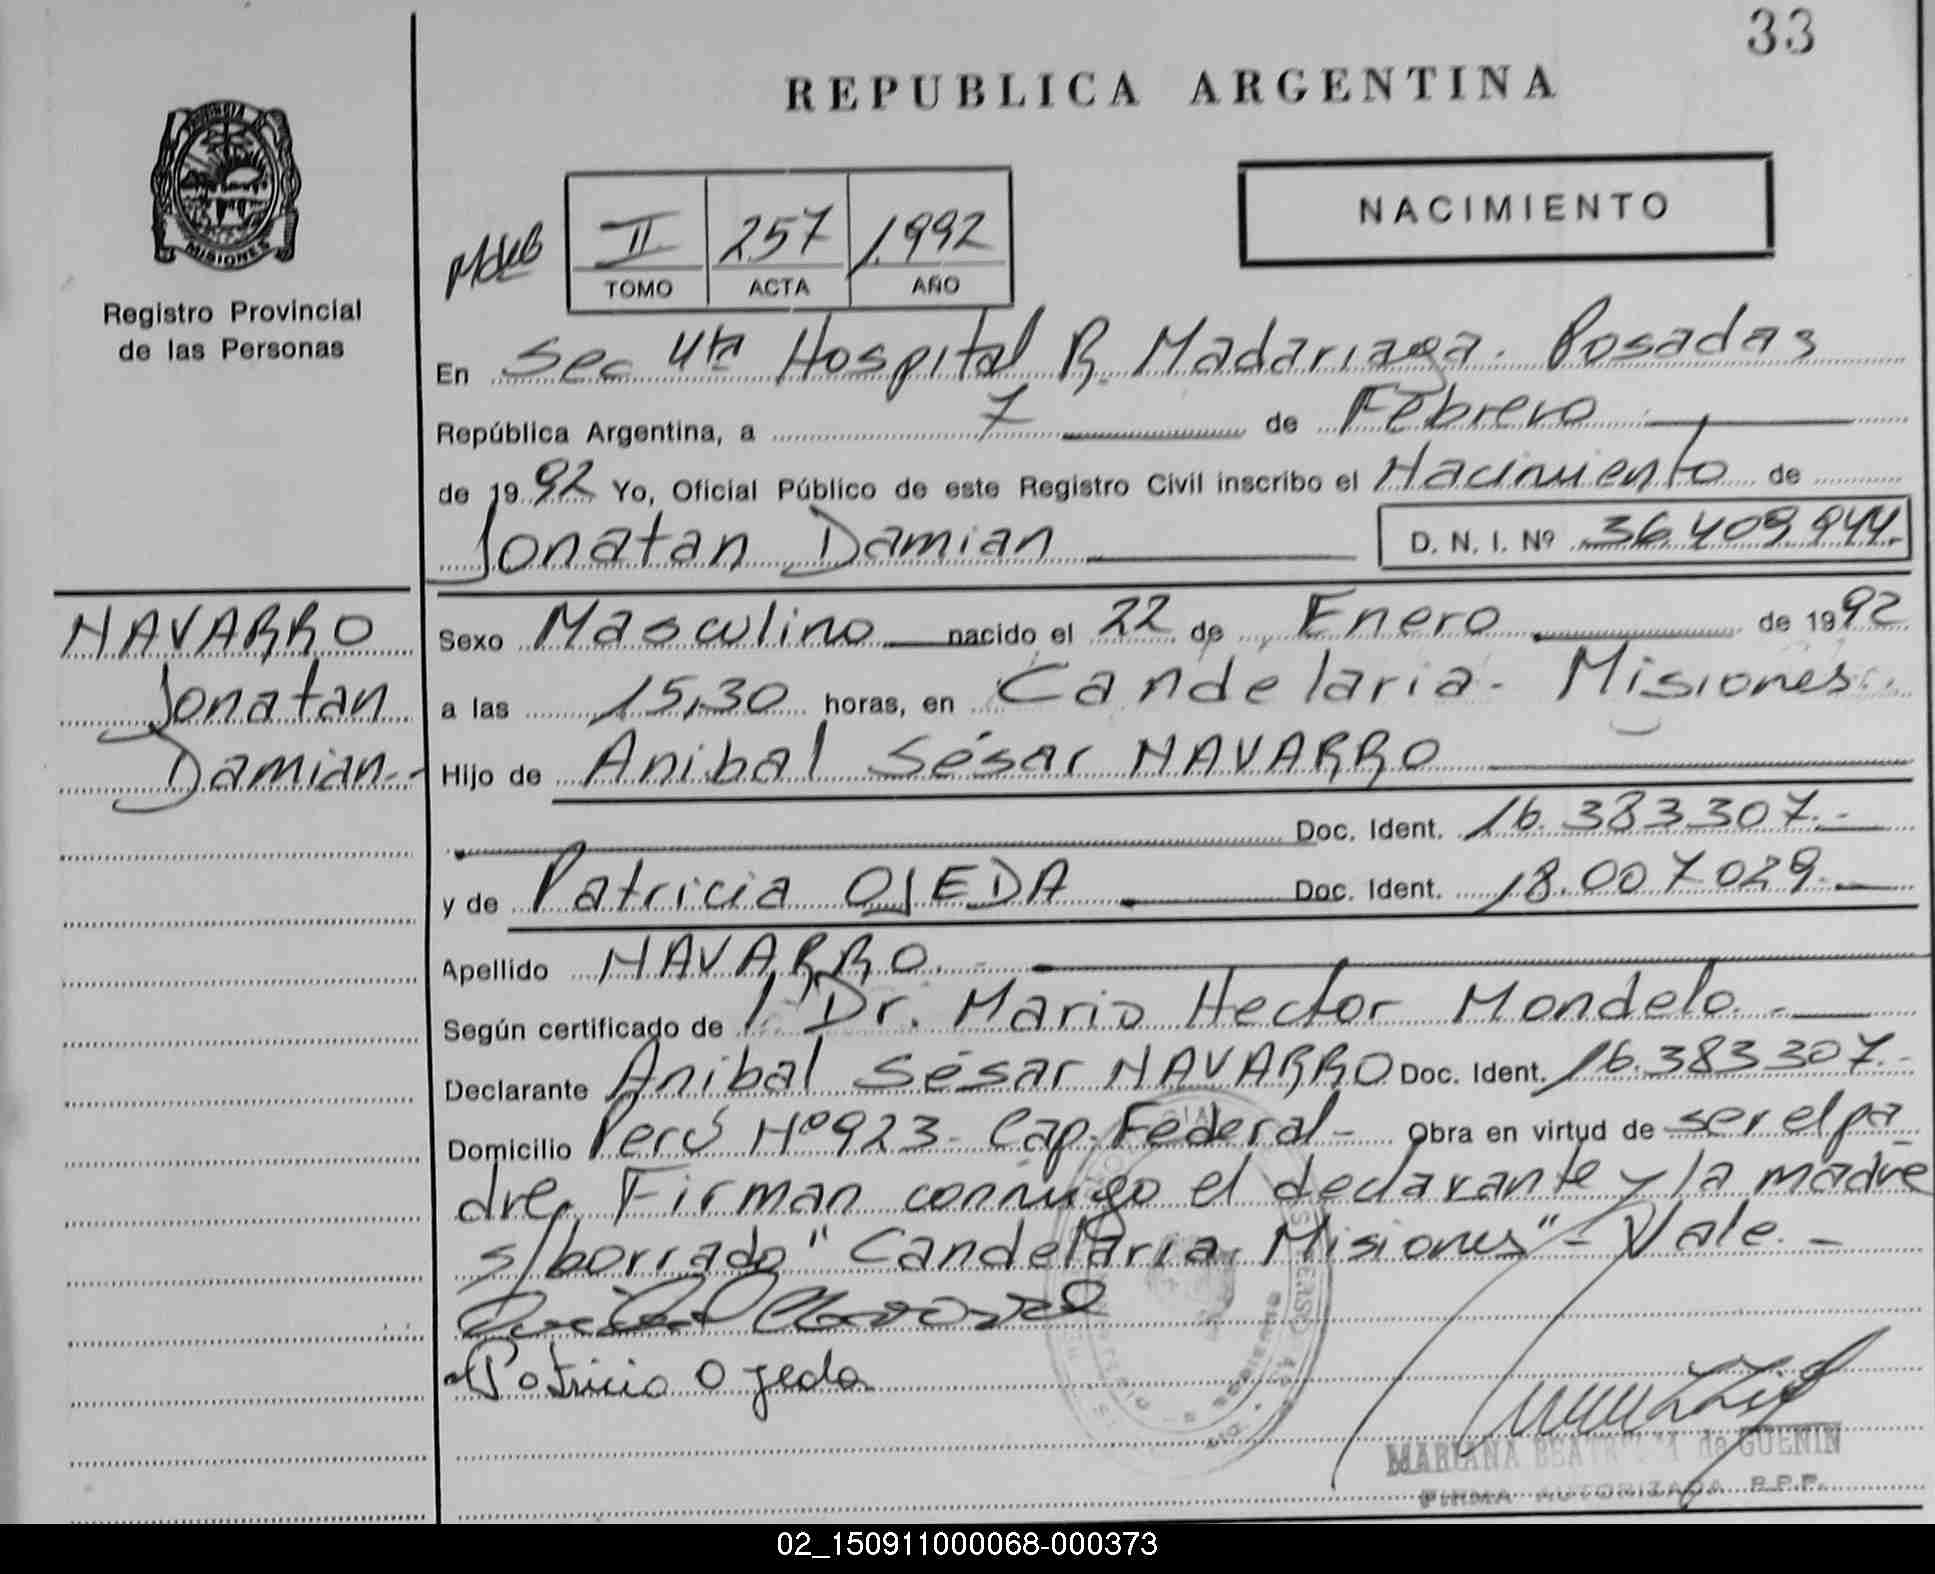 33
REPUBLICA ARGENTINA
PROVINCIA DE
MISIONES
Registro Provincial
de las Personas
II 257 1.992
TOMO ACTA AÑO
NACIMIENTO
En Sec 4ta Hospital R. Madariaga. Posadas
República Argentina, a 7 de Febrero
de 1992 Yo, Oficial Público de este Registro Civil inscribo el Nacimiento de
Jonatan Damian D. N. I. Nº 36.409.944.
NAVARRO
Jonatan
Damian.-
Sexo Masculino nacido el 22 de Enero de 1992
a las 15,30 horas, en Candelaria- Misiones
Hijo de Anibal Sésar NAVARRO
Doc. Ident. 16.383.307.-
y de Patricia OJEDA Doc. Ident. 18.007.029.-
Apellido NAVARRO.-
Según certificado de Dr. Mario Hector Mondelo.-
Declarante Anibal Sésar NAVARRO Doc. Ident. 16.383.307.-
Domicilio Perú Nº 923- Cap. Federal- Obra en virtud de ser el pa-
dre, Firman conmigo el declarante y la madre
s/borrado "Candelaria- Misiones"- Vale.-
Patricia Ojeda
MARIANA de GUENIN
FIRMA AUTORIZADA R.P.P.
02_150911000068-000373